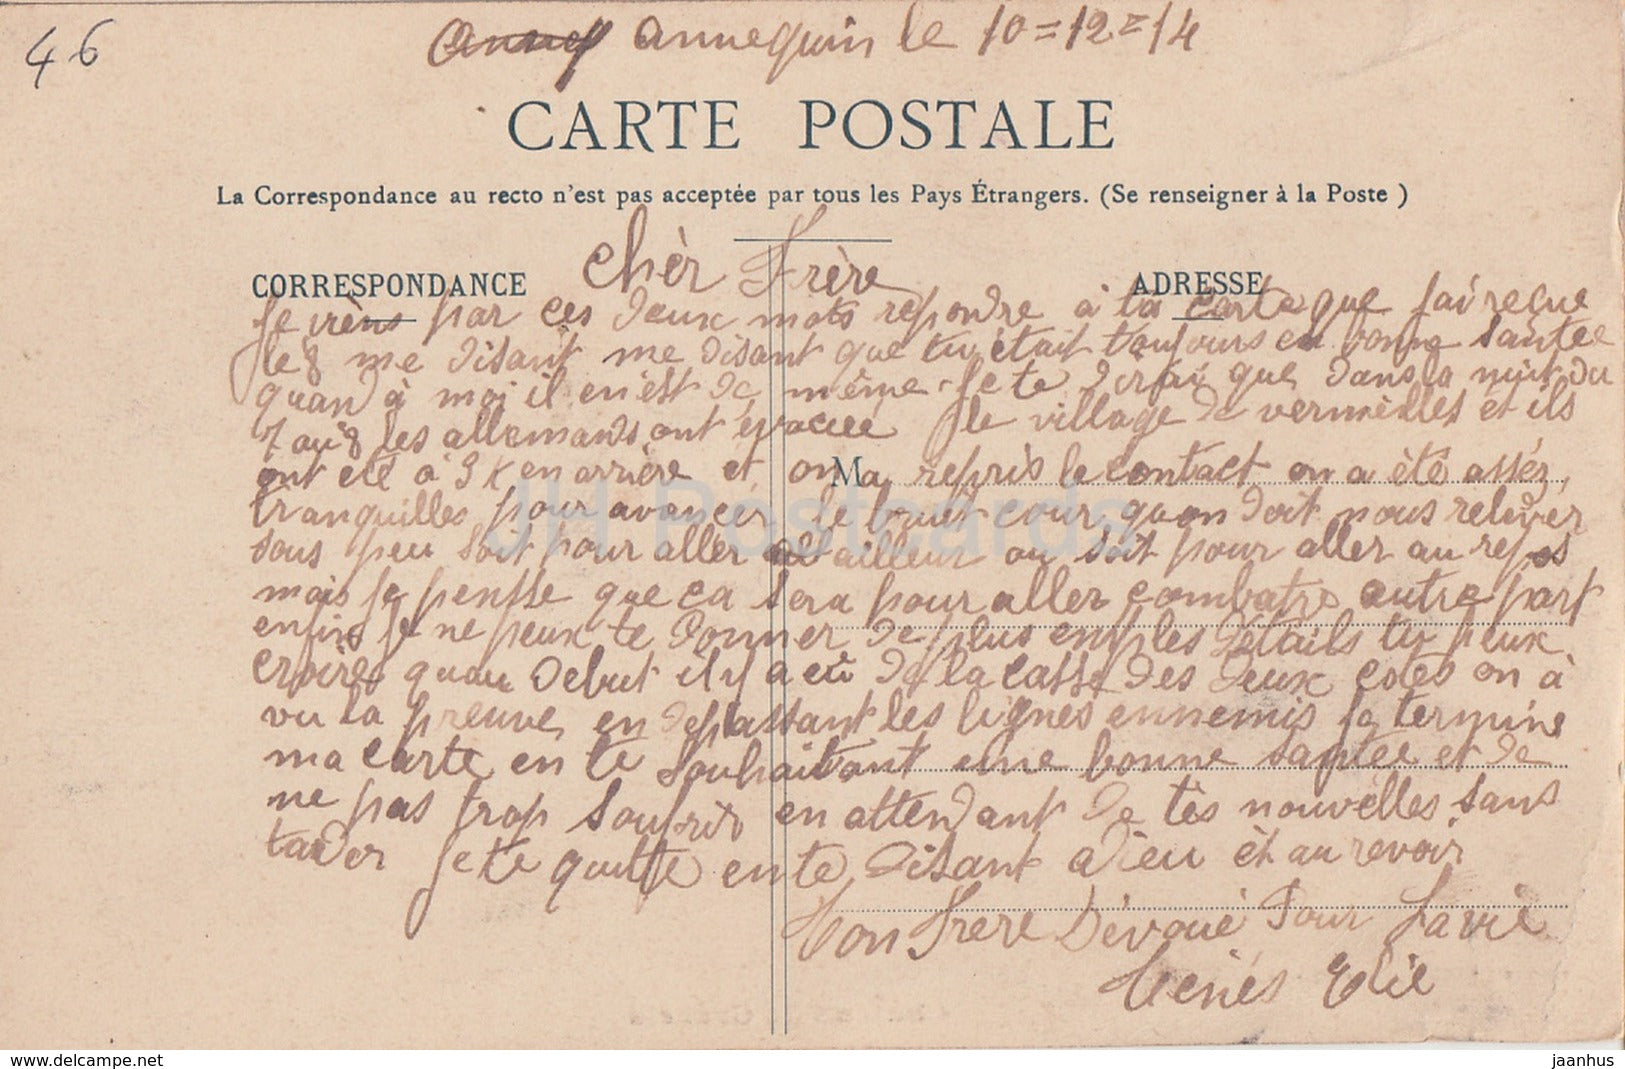 46
Anneq annequin le 10=12=14
CARTE POSTALE
La Correspondance au recto n'est pas acceptée par tous les Pays Étrangers. (Se renseigner à la Poste )
CORRESPONDANCE
ADRESSE
chèr Frère
Je vièns par ces deux mots repondre à ta carte que j'ai reçue
le 8 me disant me disant que tu était toujours en bonne santée
quand à moi il en est de même. Je te dirai que dans la nuit du
7 au 8 les allemands ont évacuée le village de vermèlles et ils
ont été à 3 K en arrière et on a repris le contact on a été assez
tranquilles pour avancer le bruit cour quon doit nous relever
sous peu soit pour aller ailleur ou soit pour aller au repos
mais je pensse que ca sera pour aller combatre autre part
enfin je ne peux te donner de plus emples détails tu peux
croire quau debut il y a eu de la casse des deux cotés on à
vu la preuve en deplassant les lignes ennemis je termine
ma carte en te souhaitant une bonne santée et de
ne pas trop soufrir en attendant de tès nouvèlles sans
tarder Je te quitte en te disant adieu èt au revoir
Ton frere Dévoué Pour La vie
Elie
Ma
JH Postcards
www.delcampe.net
jaanhus